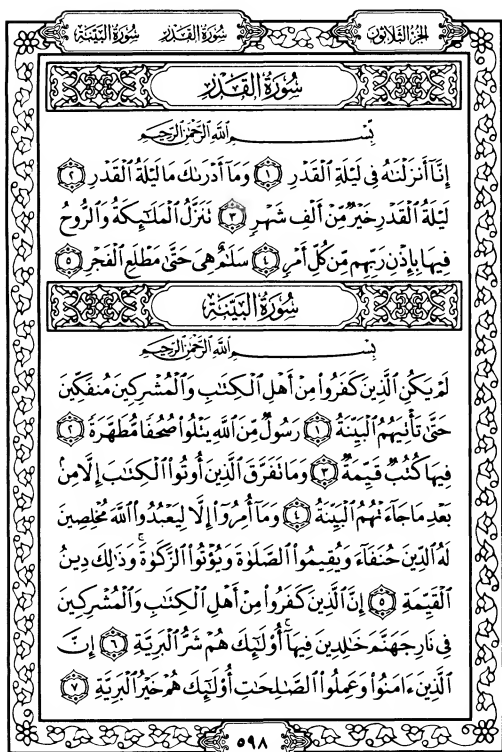 الجزء الثلاثون سورة القدر سورة البينة
سُورَةُ القَدْرِ
بِسْمِ اللَّهِ الرَّحْمَٰنِ الرَّحِيمِ
إِنَّآ أَنزَلْنَٰهُ فِى لَيْلَةِ ٱلْقَدْرِ ١ وَمَآ أَدْرَىٰكَ مَا لَيْلَةُ ٱلْقَدْرِ ٢
لَيْلَةُ ٱلْقَدْرِ خَيْرٌ مِّنْ أَلْفِ شَهْرٍ ٣ تَنَزَّلُ ٱلْمَلَٰٓئِكَةُ وَٱلرُّوحُ
فِيهَا بِإِذْنِ رَبِّهِم مِّن كُلِّ أَمْرٍ ٤ سَلَٰمٌ هِىَ حَتَّىٰ مَطْلَعِ ٱلْفَجْرِ ٥
سُورَةُ البَيِّنَةِ
بِسْمِ اللَّهِ الرَّحْمَٰنِ الرَّحِيمِ
لَمْ يَكُنِ ٱلَّذِينَ كَفَرُوا۟ مِنْ أَهْلِ ٱلْكِتَٰبِ وَٱلْمُشْرِكِينَ مُنفَكِّينَ
حَتَّىٰ تَأْتِيَهُمُ ٱلْبَيِّنَةُ ١ رَسُولٌ مِّنَ ٱللَّهِ يَتْلُوا۟ صُحُفًا مُّطَهَّرَةً ٢
فِيهَا كُتُبٌ قَيِّمَةٌ ٣ وَمَا تَفَرَّقَ ٱلَّذِينَ أُوتُوا۟ ٱلْكِتَٰبَ إِلَّا مِنۢ
بَعْدِ مَا جَآءَتْهُمُ ٱلْبَيِّنَةُ ٤ وَمَآ أُمِرُوٓا۟ إِلَّا لِيَعْبُدُوا۟ ٱللَّهَ مُخْلِصِينَ
لَهُ ٱلدِّينَ حُنَفَآءَ وَيُقِيمُوا۟ ٱلصَّلَوٰةَ وَيُؤْتُوا۟ ٱلزَّكَوٰةَ ۚ وَذَٰلِكَ دِينُ
ٱلْقَيِّمَةِ ٥ إِنَّ ٱلَّذِينَ كَفَرُوا۟ مِنْ أَهْلِ ٱلْكِتَٰبِ وَٱلْمُشْرِكِينَ
فِى نَارِ جَهَنَّمَ خَٰلِدِينَ فِيهَآ ۚ أُو۟لَٰٓئِكَ هُمْ شَرُّ ٱلْبَرِيَّةِ ٦ إِنَّ
ٱلَّذِينَ ءَامَنُوا۟ وَعَمِلُوا۟ ٱلصَّٰلِحَٰتِ أُو۟لَٰٓئِكَ هُمْ خَيْرُ ٱلْبَرِيَّةِ ٧
٥٩٨